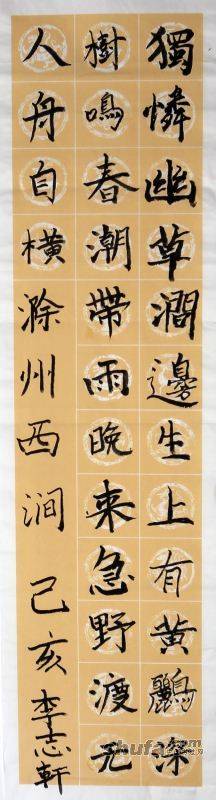 獨憐幽草澗邊生上有黃鸝深
樹鳴春潮帶雨晚来急野渡无
人舟自橫滁州西涧 己亥李志軒